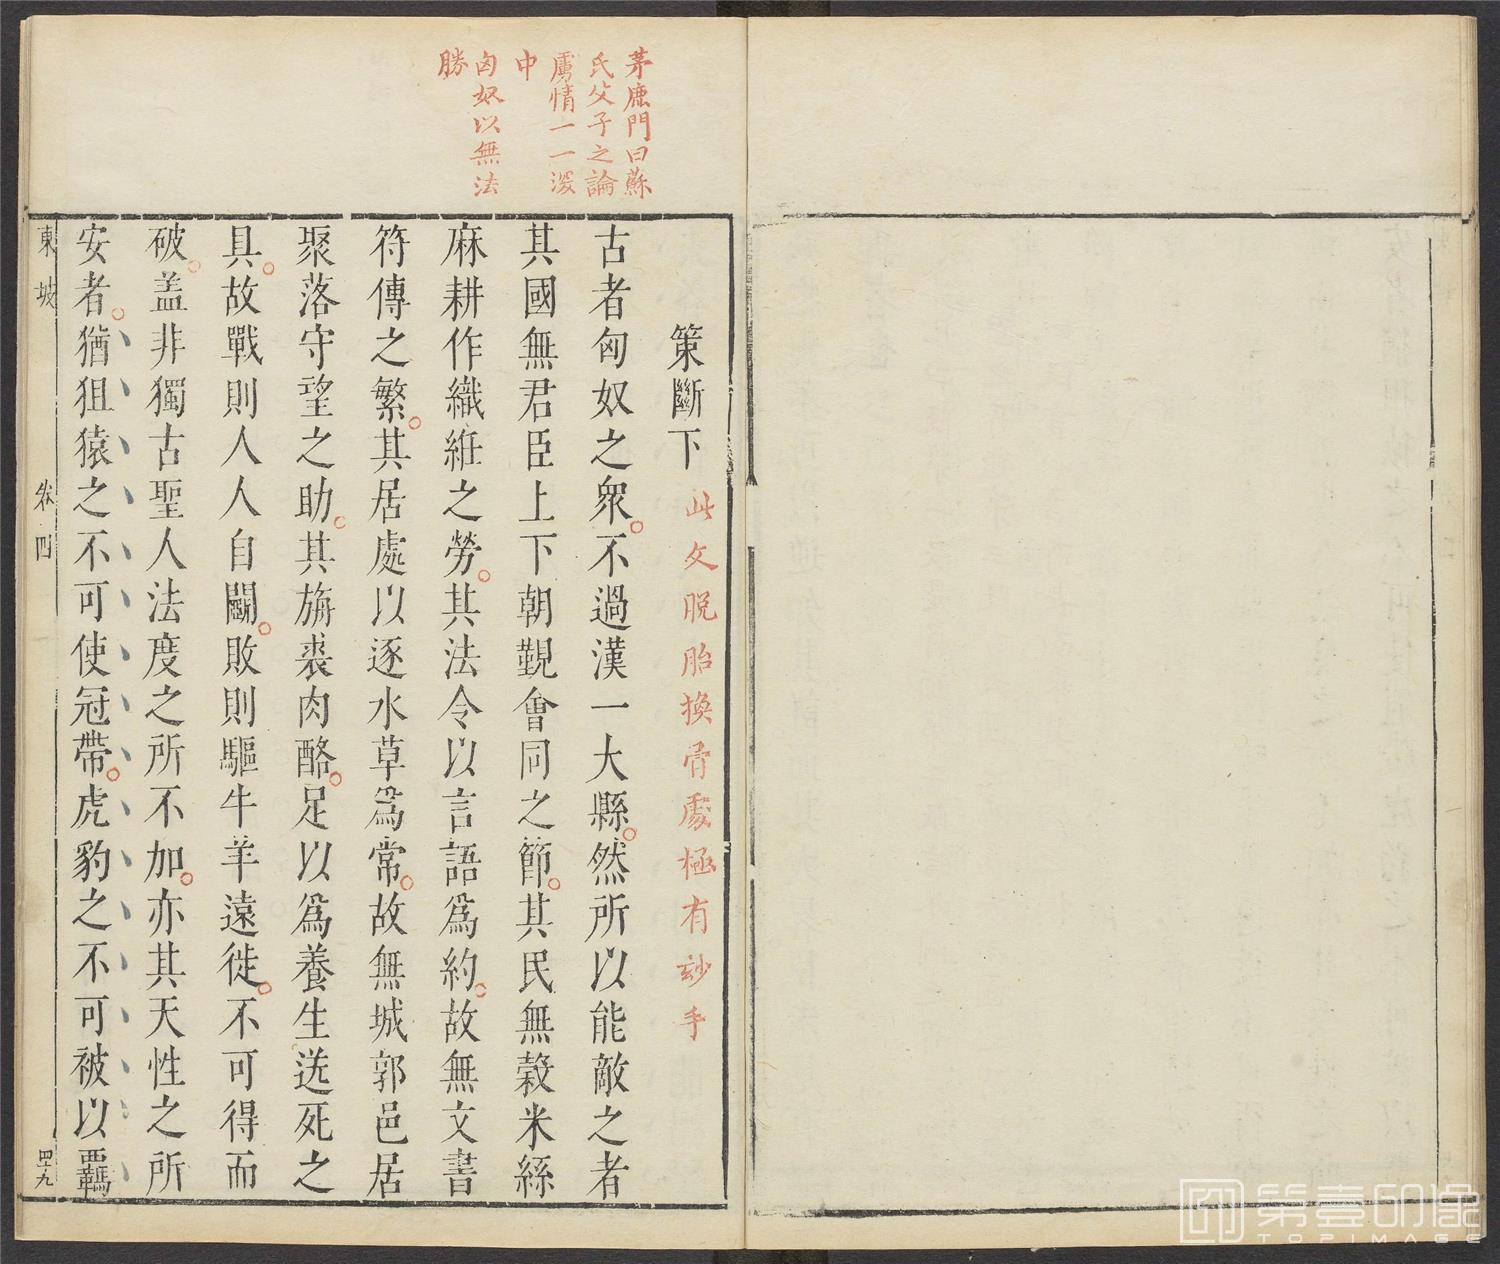 茅鹿門曰蘇
氏父子之論
虜情一一漢
中
匈奴以無法
勝
策斷下
此文脫胎換骨處極有妙手
古者匈奴之衆不過漢一大縣然所以能敵之者
其國無君臣上下朝覲會同之節其民無穀米絲
麻耕作織紝之勞其法令以言語爲約故無文書
符傳之繁其居處以逐水草爲常故無城郭邑居
聚落守望之助其旃裘肉酪足以爲養生送死之
具故戰則人人自鬭敗則驅牛羊遠徙不可得而
破盖非獨古聖人法度之所不加亦其天性之所
安者猶狙猿之不可使冠帶虎豹之不可被以羈
東坡
卷四
四十九
第壹印像
TOPIMAGE